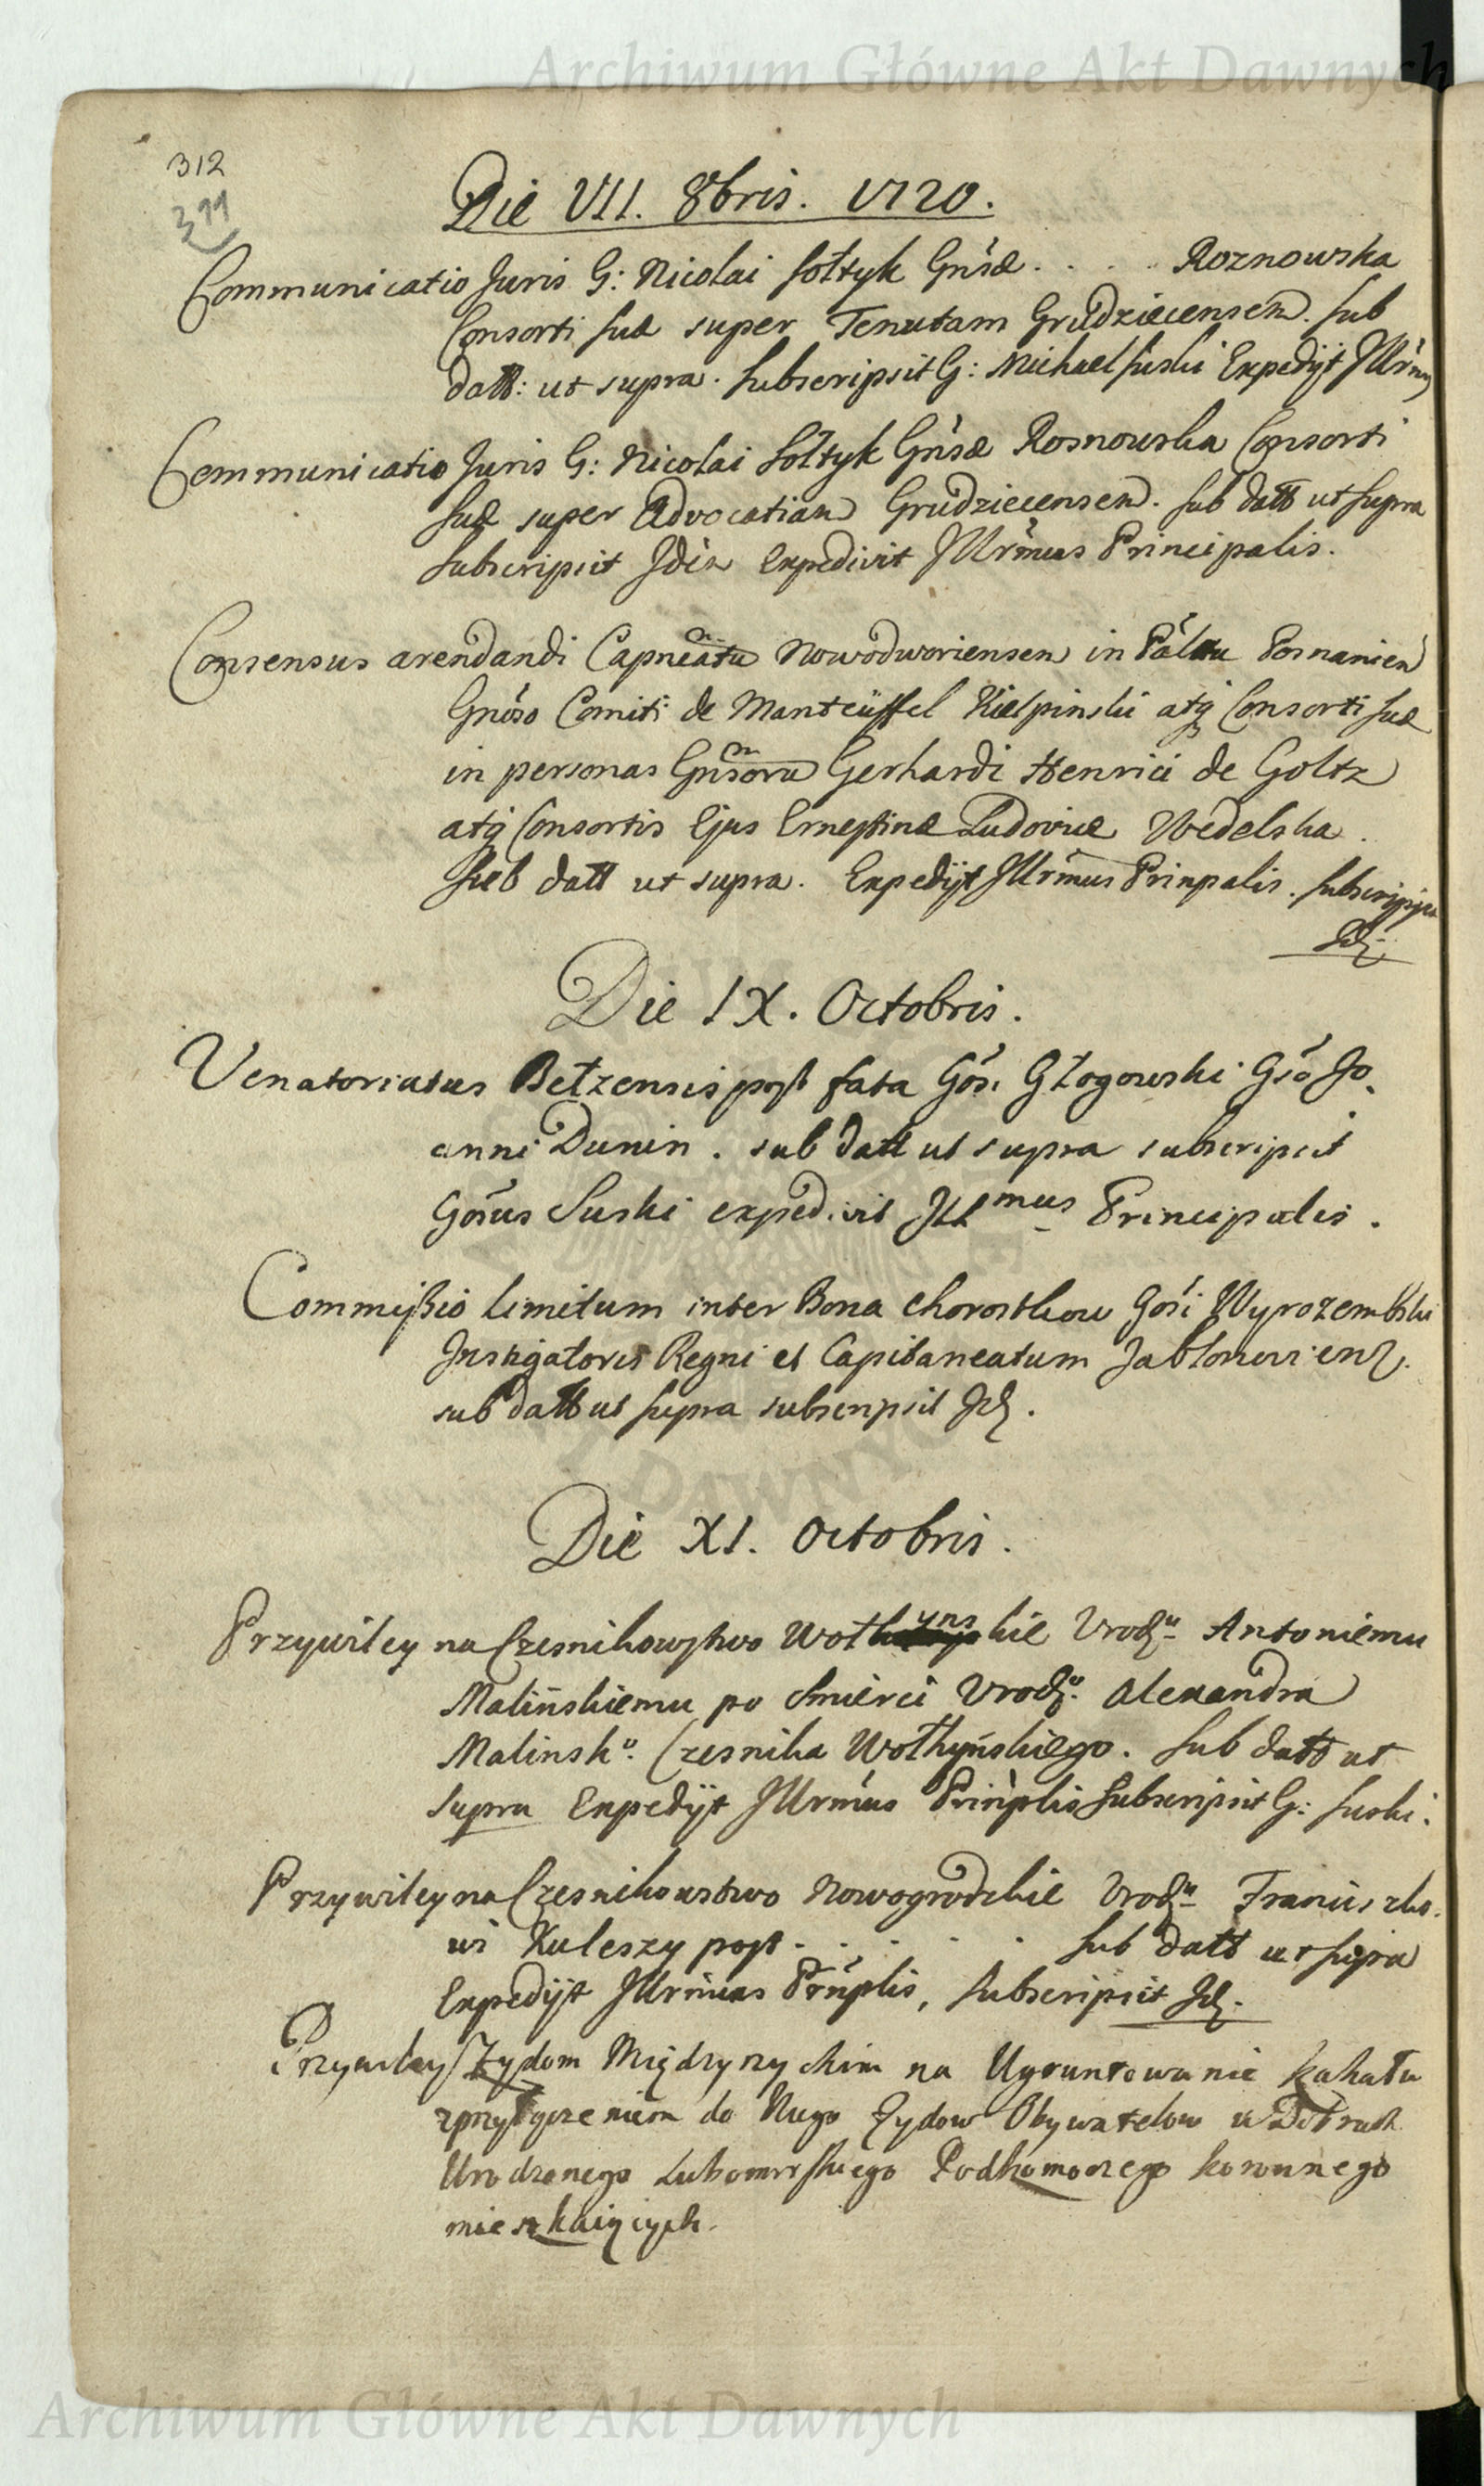 Archiwum Główne Akt Dawnych
312
311
Die VII. 8bris. 1720.
Communicatio Juris G: Nicolai Sołtyk Gnsæ . . . . Roznowska
Consorti suæ super Tenutam Grudziecensem. sub
datt: ut supra. Subscripsit G: Michael Suski Expedyt Illrmus
Communicatio Juris G: Nicolai Sołtyk Gnsæ Rosnowska Consorti
suæ super Advocatiam Grudziecensem. sub datt ut supra
subscripsit Idem Expedivit Illrmus Principalis.
Consensus arendandi Capneatu Nowodworiensem in Palatu Posnanien
Gnoso Comiti de Manteüffel Kielpinski atq Consorti suæ
in personas Gnsoru Gerhardi Henrici de Goltz
atq Consortis Ejus Ernestinæ Ludovicæ Wedelska.
sub datt ut supra. Expedyt Illrmus Prinpalis. Subscripsit
Id:
Die IX. Octobris.
Venatoriatus Bełzensis post fata Gosi Głogowski Gso Jo,
anni Dunin. sub datt ut supra subscripsit
Gosus Suski expedivit Ill mus Principalis.
Commissio limitum inter Bona Chorostkow Gosi Wyrozembski
Instigatoris Regni et Capitaneatum Jabłonoviens.
sub datt ut supra subscripsit Id.
Die XI. Octobris.
Przywiley na Czesnikowstwo Woł yns kie Urodzu Antoniemu
Malińskiemu po smierci Urodzo. Alexandra
Malinsko. Czesnika Wołhyńskiego. sub datt ut
supra Expedyt Illrmus Prinplis subscripsit G: Suski.
Przywiley na Czesnikowstwo Nowogrodzkie Urodzu Franciszko.
wi Kuleszy post . . . . . sub datt ut supra
Expedyt Illrmus Prnplis, Subscripsit Id.
Przywiley Zydom Międzyrzyckim na Ugruntowanie kahału
zprzyłączeniem do Niego Zydow Obywatelow w Dobrach
Urodzonego Lubomirskiego Podkomorzego koronnego
mieszkaiących.
Archiwum Główne Akt Dawnych